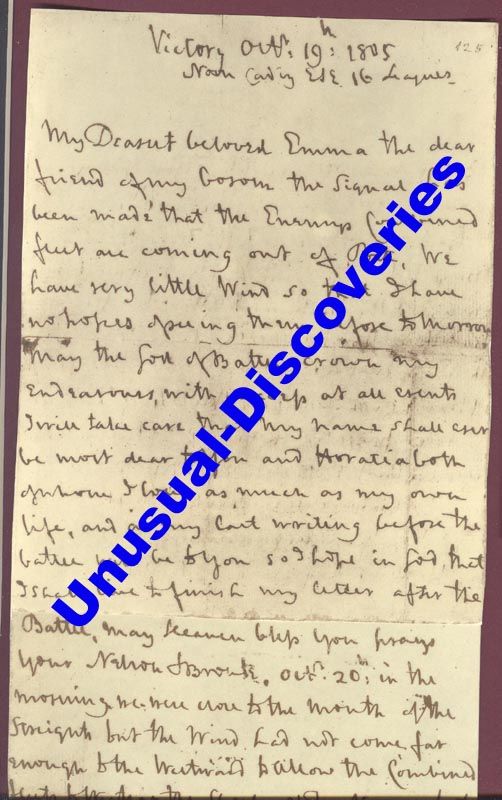 Victory Octr: 19th: 1805
125
Noon Cadiz ESE 16 Leagues
My Dearest beloved Emma the dear
friend of my bosom the Signal has
been made that the Enemys Combined
fleet are coming out of Port, We
have very little Wind so that I have
no hopes of seeing them before tomorrow
May the God of Battles crown my
Endeavours with at all events
I will take care that my name shall ever
be most dear to you and Horatia both
of whom I love as much as my own
life, and as my last writing before the
battle will be to You so I hope in God that
I shall live to finish my letter after the
Battle, may Heaven bless you prays
your Nelson & Bronte, Octr. 20th: in the
morning we were close to the Mouth of the
Streights but the Wind had not come far
enough to the Westward to allow the Combined
Unusual-Discoveries